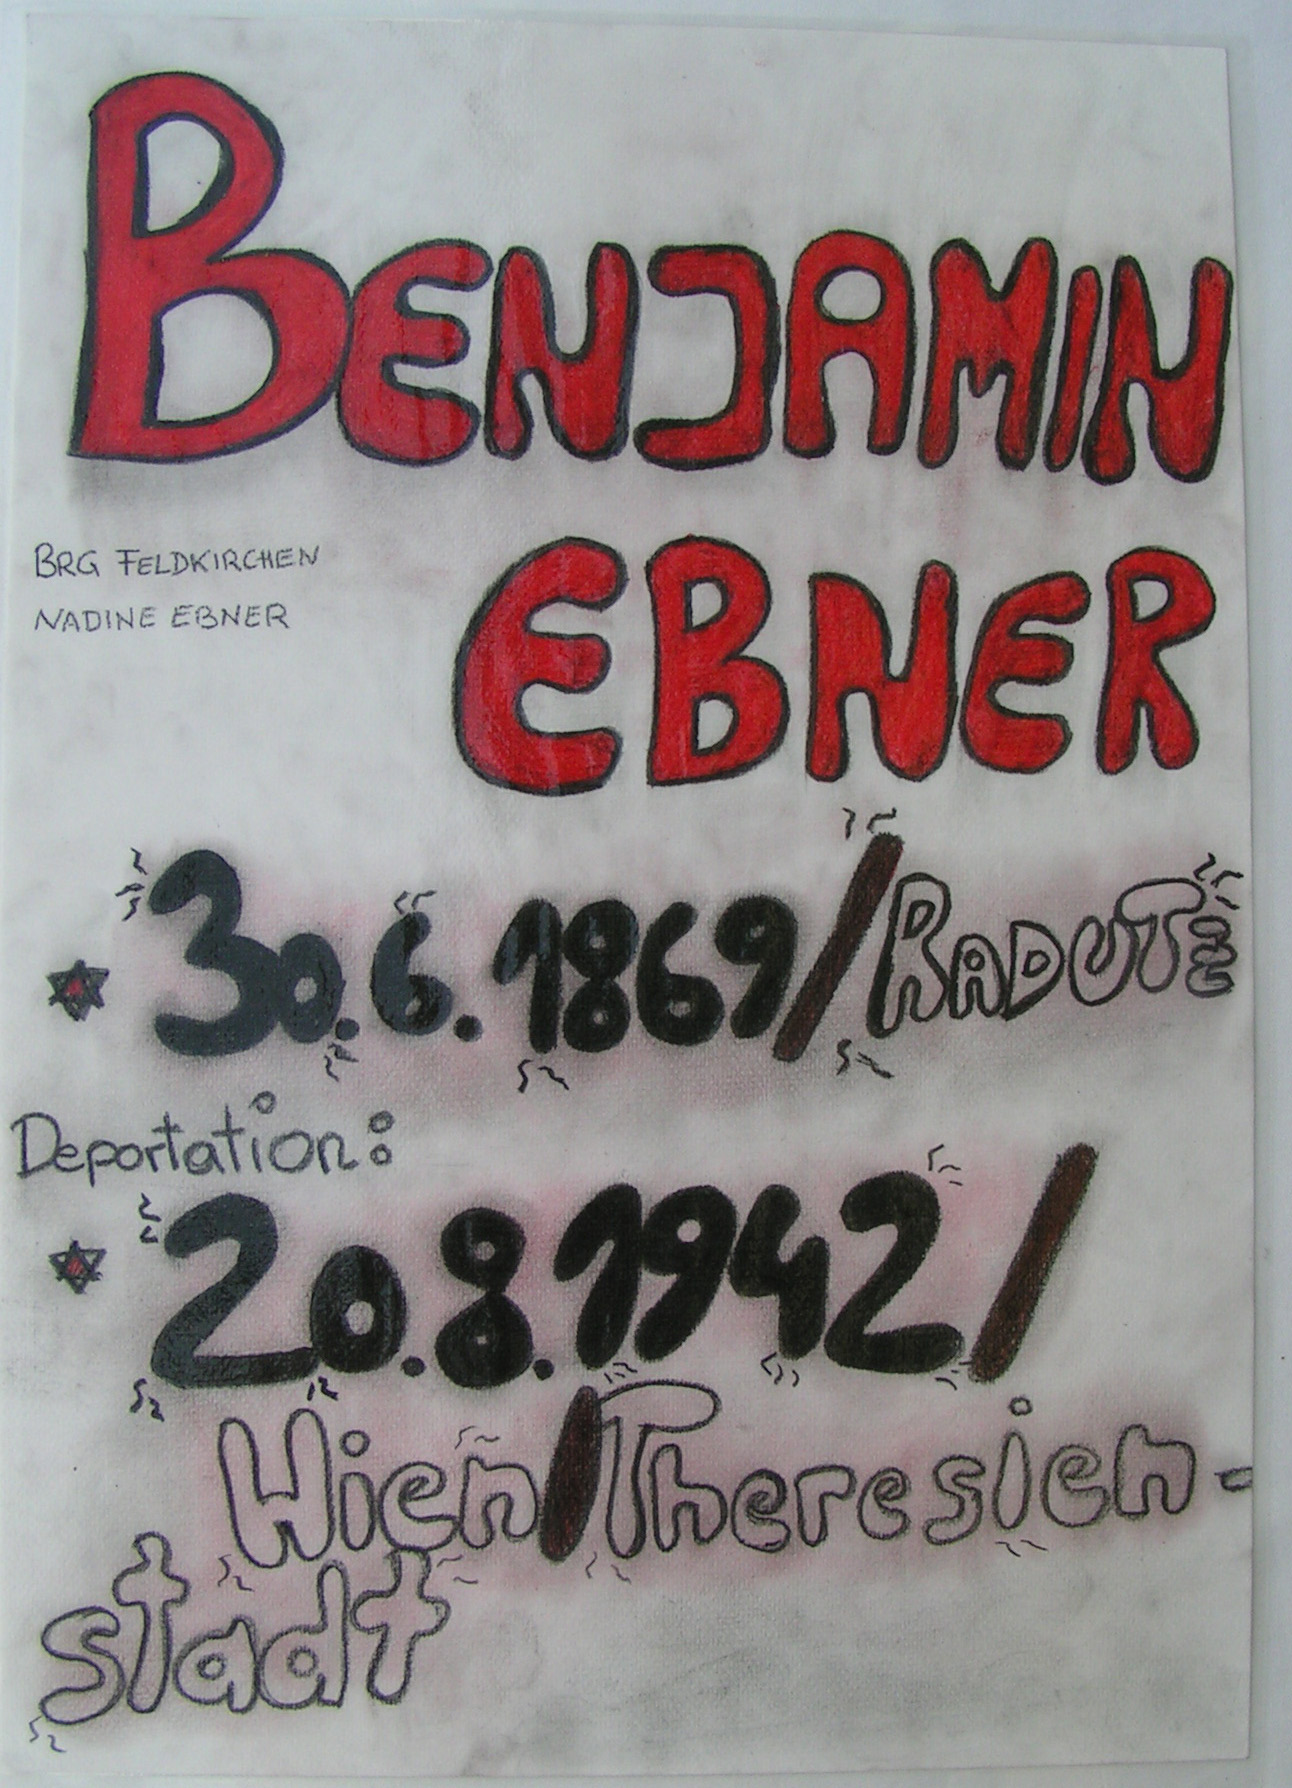 BENJAMIN
BRG FELDKIRCHEN
NADINE EBNER
EBNER
30.6.1869/RADUTE
Deportation:
20.8.1942/
Wien/Theresien-
stadt